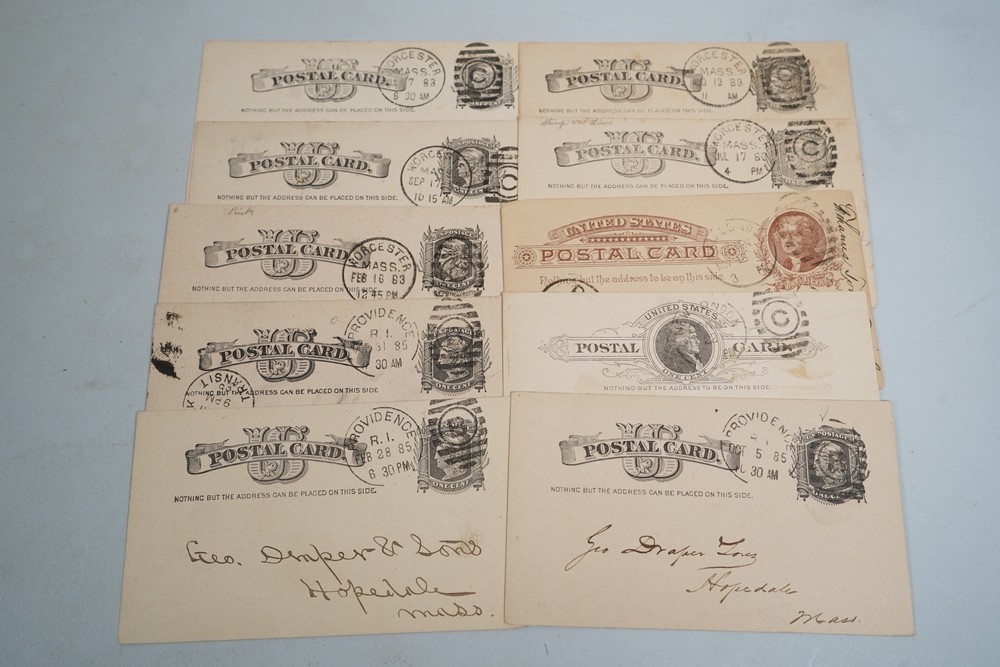 POSTAL CARD.
NOTHING BUT THE ADDRESS CAN BE PLACED ON THIS SIDE.
WORCESTER
MASS.
7 83
8 30 AM
C
ONE CENT
POSTAL CARD.
NOTHING BUT THE ADDRESS CAN BE PLACED ON THIS SIDE.
WORCESTER
MASS.
13 83
11 AM
POSTAL CARD.
NOTHING BUT THE ADDRESS CAN BE PLACED ON THIS SIDE.
WORCESTER
MASS
SEP 17
10 15 AM
C
ONE CENT
POSTAL CARD.
NOTHING BUT THE ADDRESS CAN BE PLACED ON THIS SIDE.
WORCESTER
MASS.
JUL 17 80
4 PM
C
Pink
POSTAL CARD.
NOTHING BUT THE ADDRESS CAN BE PLACED ON THIS SIDE.
WORCESTER
MASS.
FEB 16 83
12 45 PM
POSTAGE
ONE CENT
UNITED STATES
POSTAL CARD
Nothing but the address to be on this side.
POSTAL CARD.
NOTHING BUT THE ADDRESS CAN BE PLACED ON THIS SIDE.
TRANSIT
PROVIDENCE
R.I.
31 85
30 AM
ONE CENT
UNITED STATES
POSTAL CARD.
ONE CENT
NOTHING BUT THE ADDRESS TO BE ON THIS SIDE.
C
POSTAL CARD.
NOTHING BUT THE ADDRESS CAN BE PLACED ON THIS SIDE.
PROVIDENCE
R.I.
FEB 28 85
6 30 PM
ONE CENT
Geo. Draper & Sons
Hopedale
Mass.
POSTAL CARD.
NOTHING BUT THE ADDRESS CAN BE PLACED ON THIS SIDE.
PROVIDENCE
R.I.
OCT 5 85
30 AM
ONE CENT
Geo Draper Sons
Hopedale
Mass.